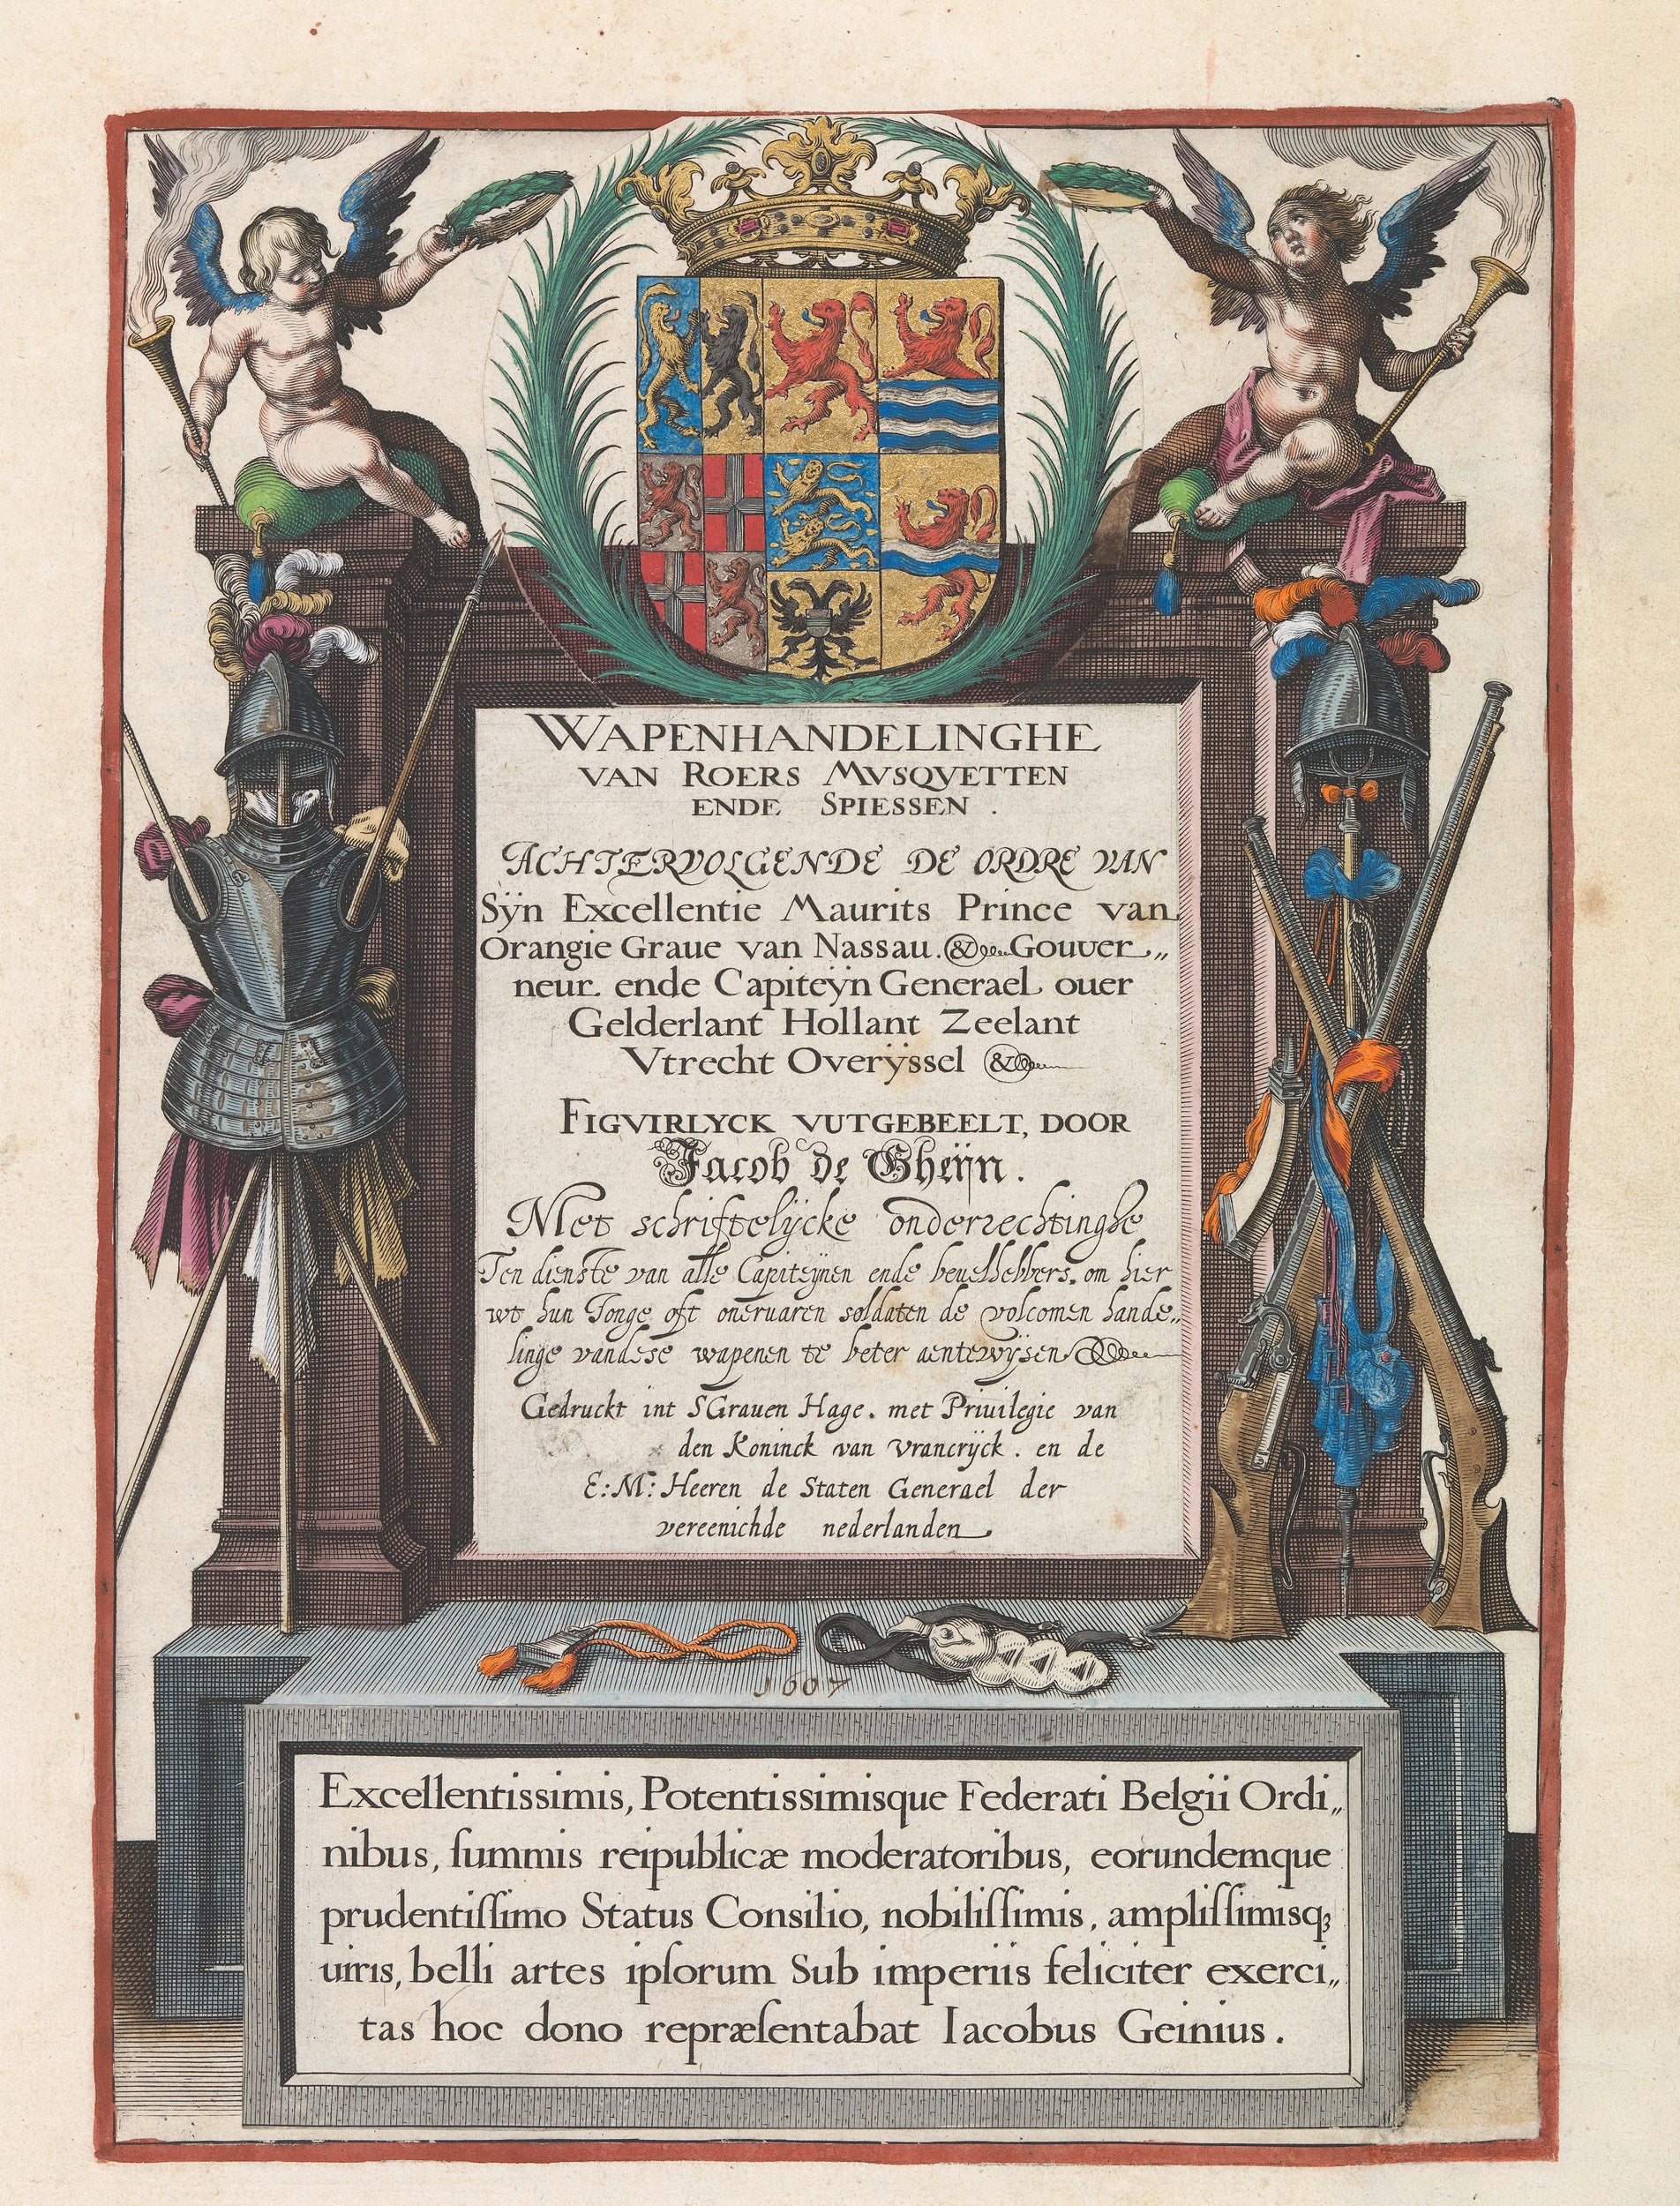 WAPENHANDELINGHE
VAN ROERS MVSQVETTEN
ENDE SPIESSEN .
ACHTERVOLGENDE DE ORDRE VAN
Sÿn Excellentie Maurits Prince van
Orangie Graue van Nassau . & Gouver„
neur ende Capiteÿn Generael ouer
Gelderlant Hollant Zeelant
Vtrecht Overÿssel &
FIGVIRLYCK VUTGEBEELT, DOOR
Jacob de Gheÿn .
Met schriftelÿcke onderrechtinghe
Ten dienste van alle Capiteÿnen ende beuelhebbers. om hier
wt hun Jonge oft oneruaren soldaten de volcomen hande„
linge vandese wapenen te beter aentewÿsen
Gedruckt int SGrauen Hage . met Priuilegie van
den Koninck van Vrancrÿck . en de
E: M: Heeren de Staten Generael der
vereenichde nederlanden
1607
Excellentissimis, Potentissimisque Federati Belgii Ordi„
nibus, ſummis reipublicæ moderatoribus, eorundemque
prudentiſſimo Status Consilio, nobiliſſimis, ampliſſimisqꝫ
uiris, belli artes ipſorum Sub imperiis feliciter exerci„
tas hoc dono repræſentabat Iacobus Geinius .